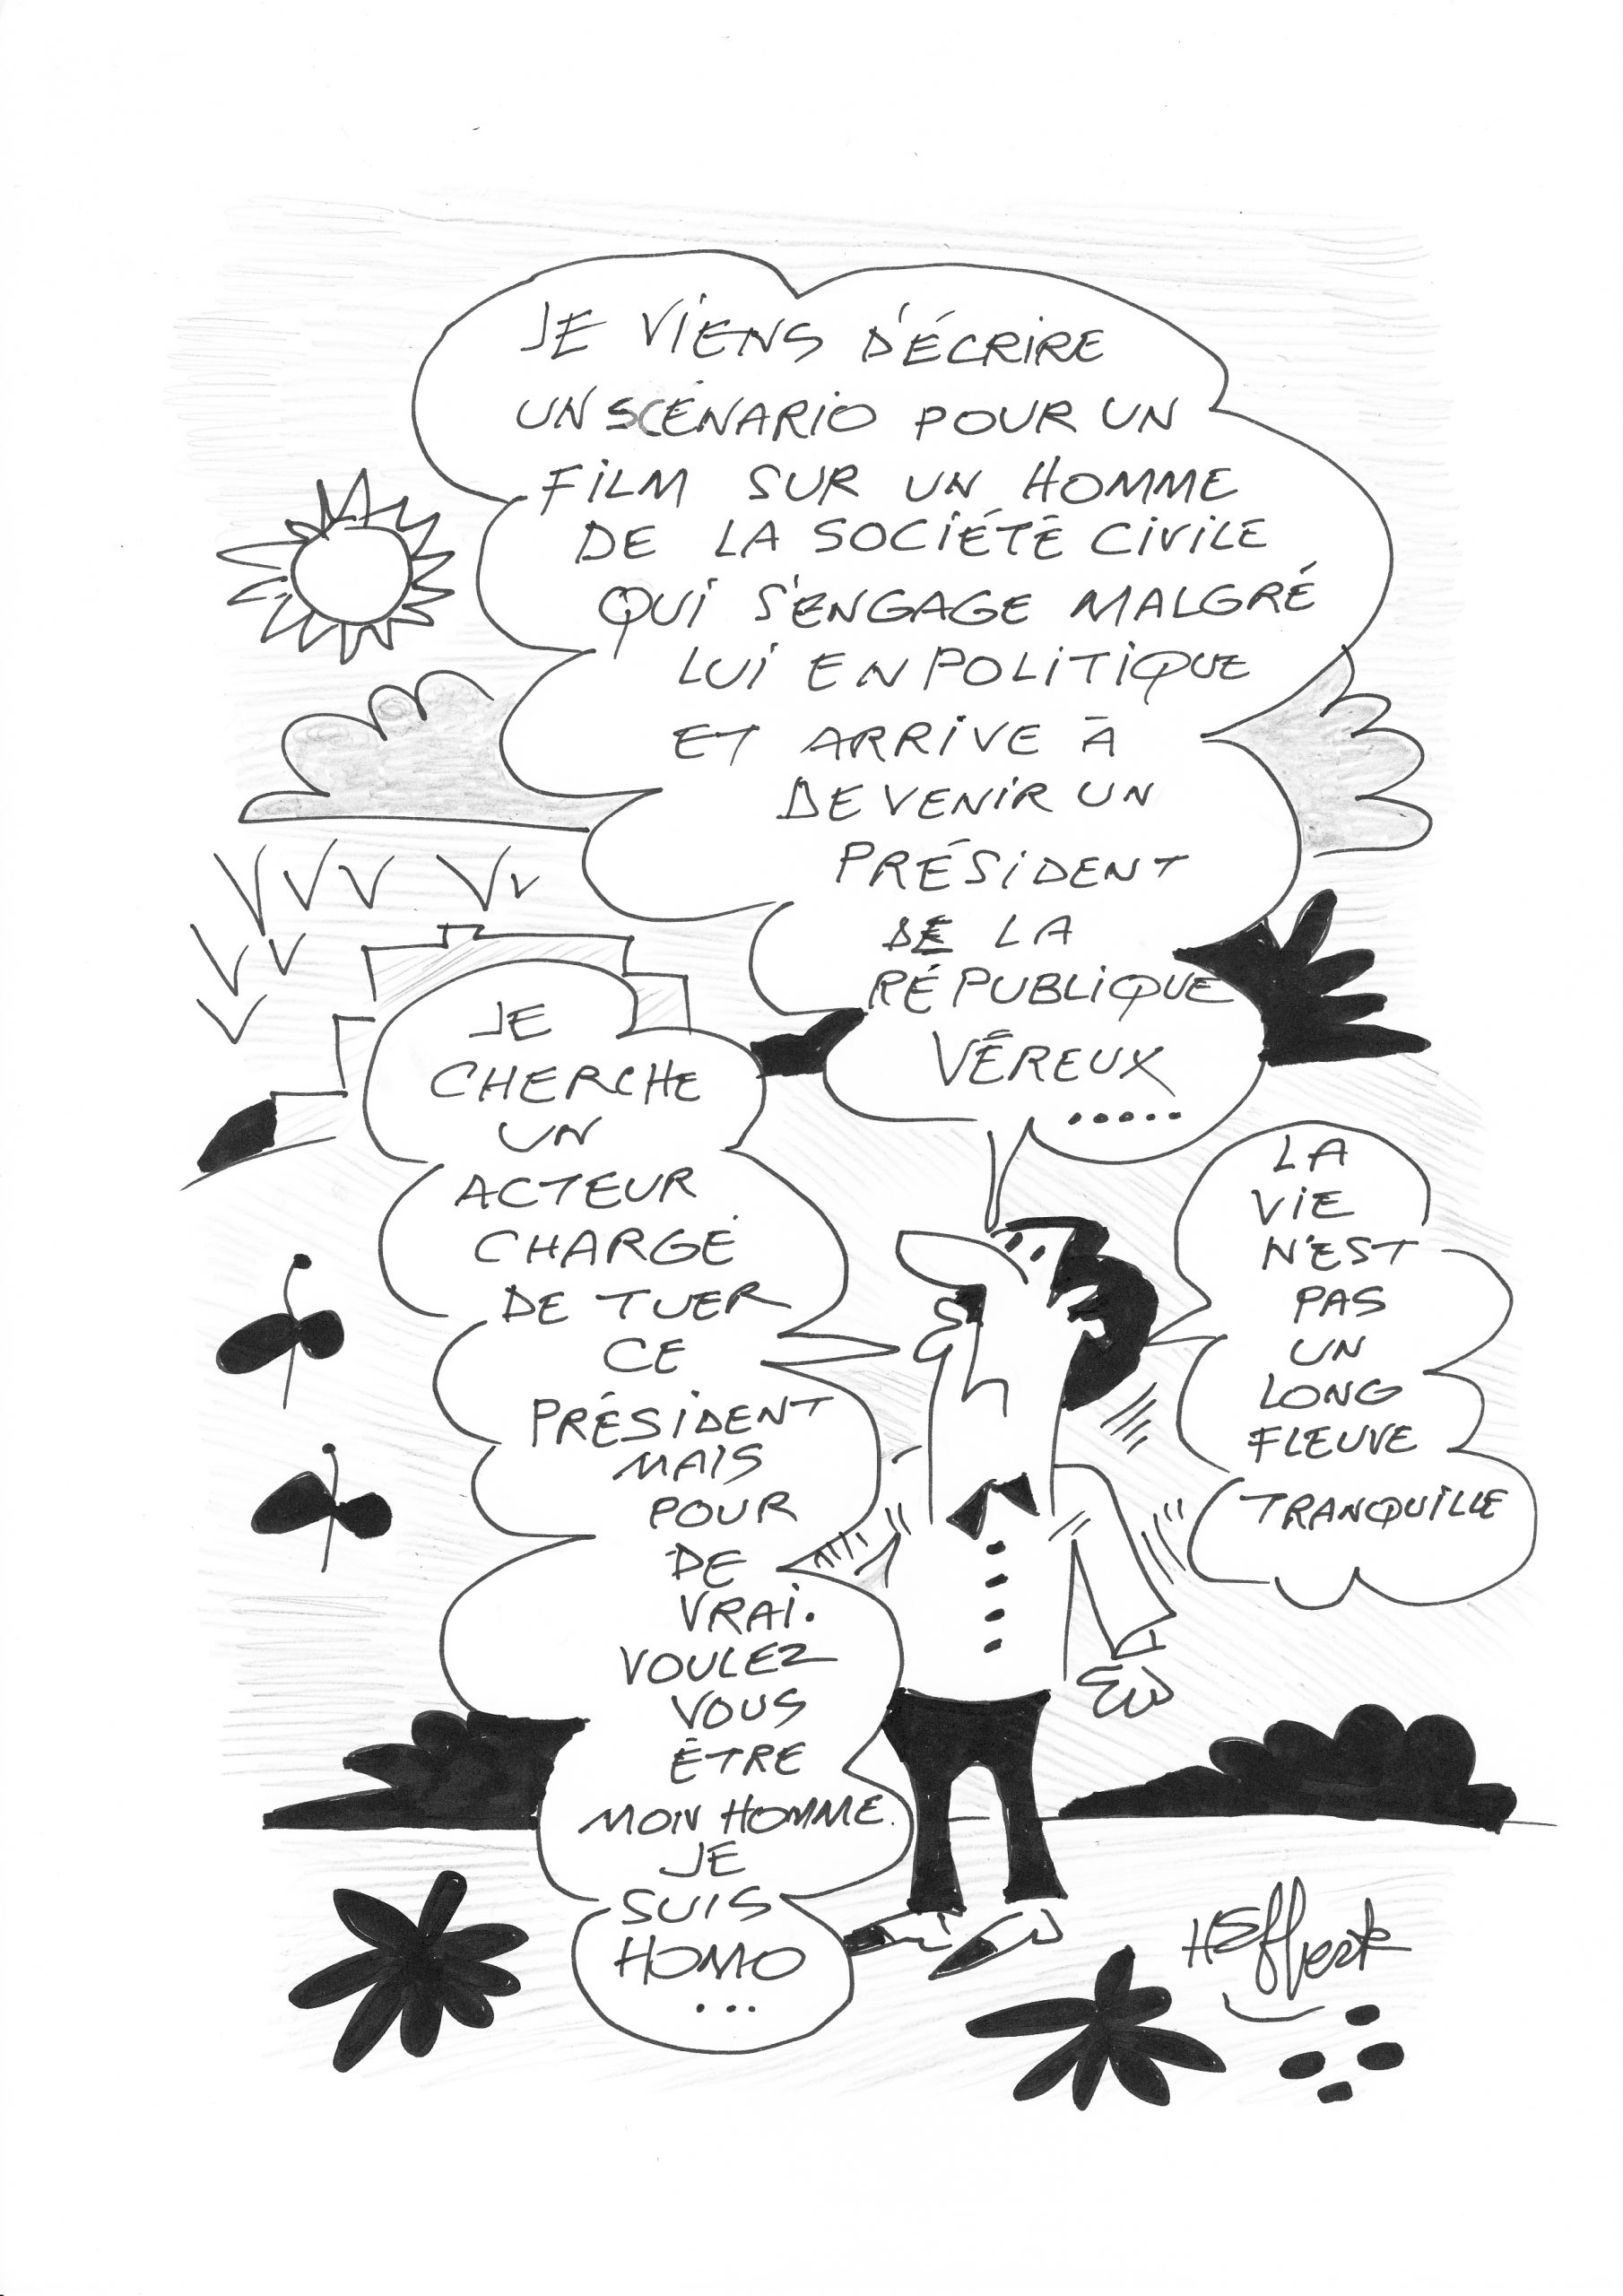 JE VIENS D'ÉCRIRE
UN SCÉNARIO POUR UN
FILM SUR UN HOMME
DE LA SOCIÉTÉ CIVILE
QUI S'ENGAGE MALGRÉ
LUI EN POLITIQUE
ET ARRIVE À
DEVENIR UN
PRÉSIDENT
DE LA
RÉPUBLIQUE
VÉREUX
.....
JE
CHERCHE
UN
ACTEUR
CHARGÉ
DE TUER
CE
PRÉSIDENT
MAIS
POUR
DE
VRAI.
VOULEZ
VOUS
ÊTRE
MON HOMME.
JE
SUIS
HOMO
...
LA
VIE
N'EST
PAS
UN
LONG
FLEUVE
TRANQUILLE